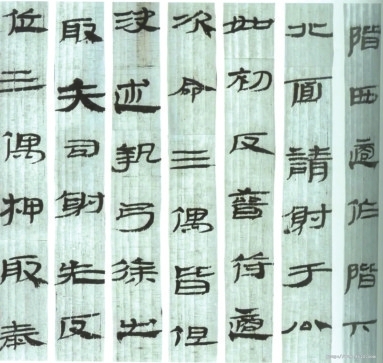 階西適作階下
北面請射于公
如初反適
次命三偶皆但
決述執弓徐出
取矢司射先反
位三偶柙取